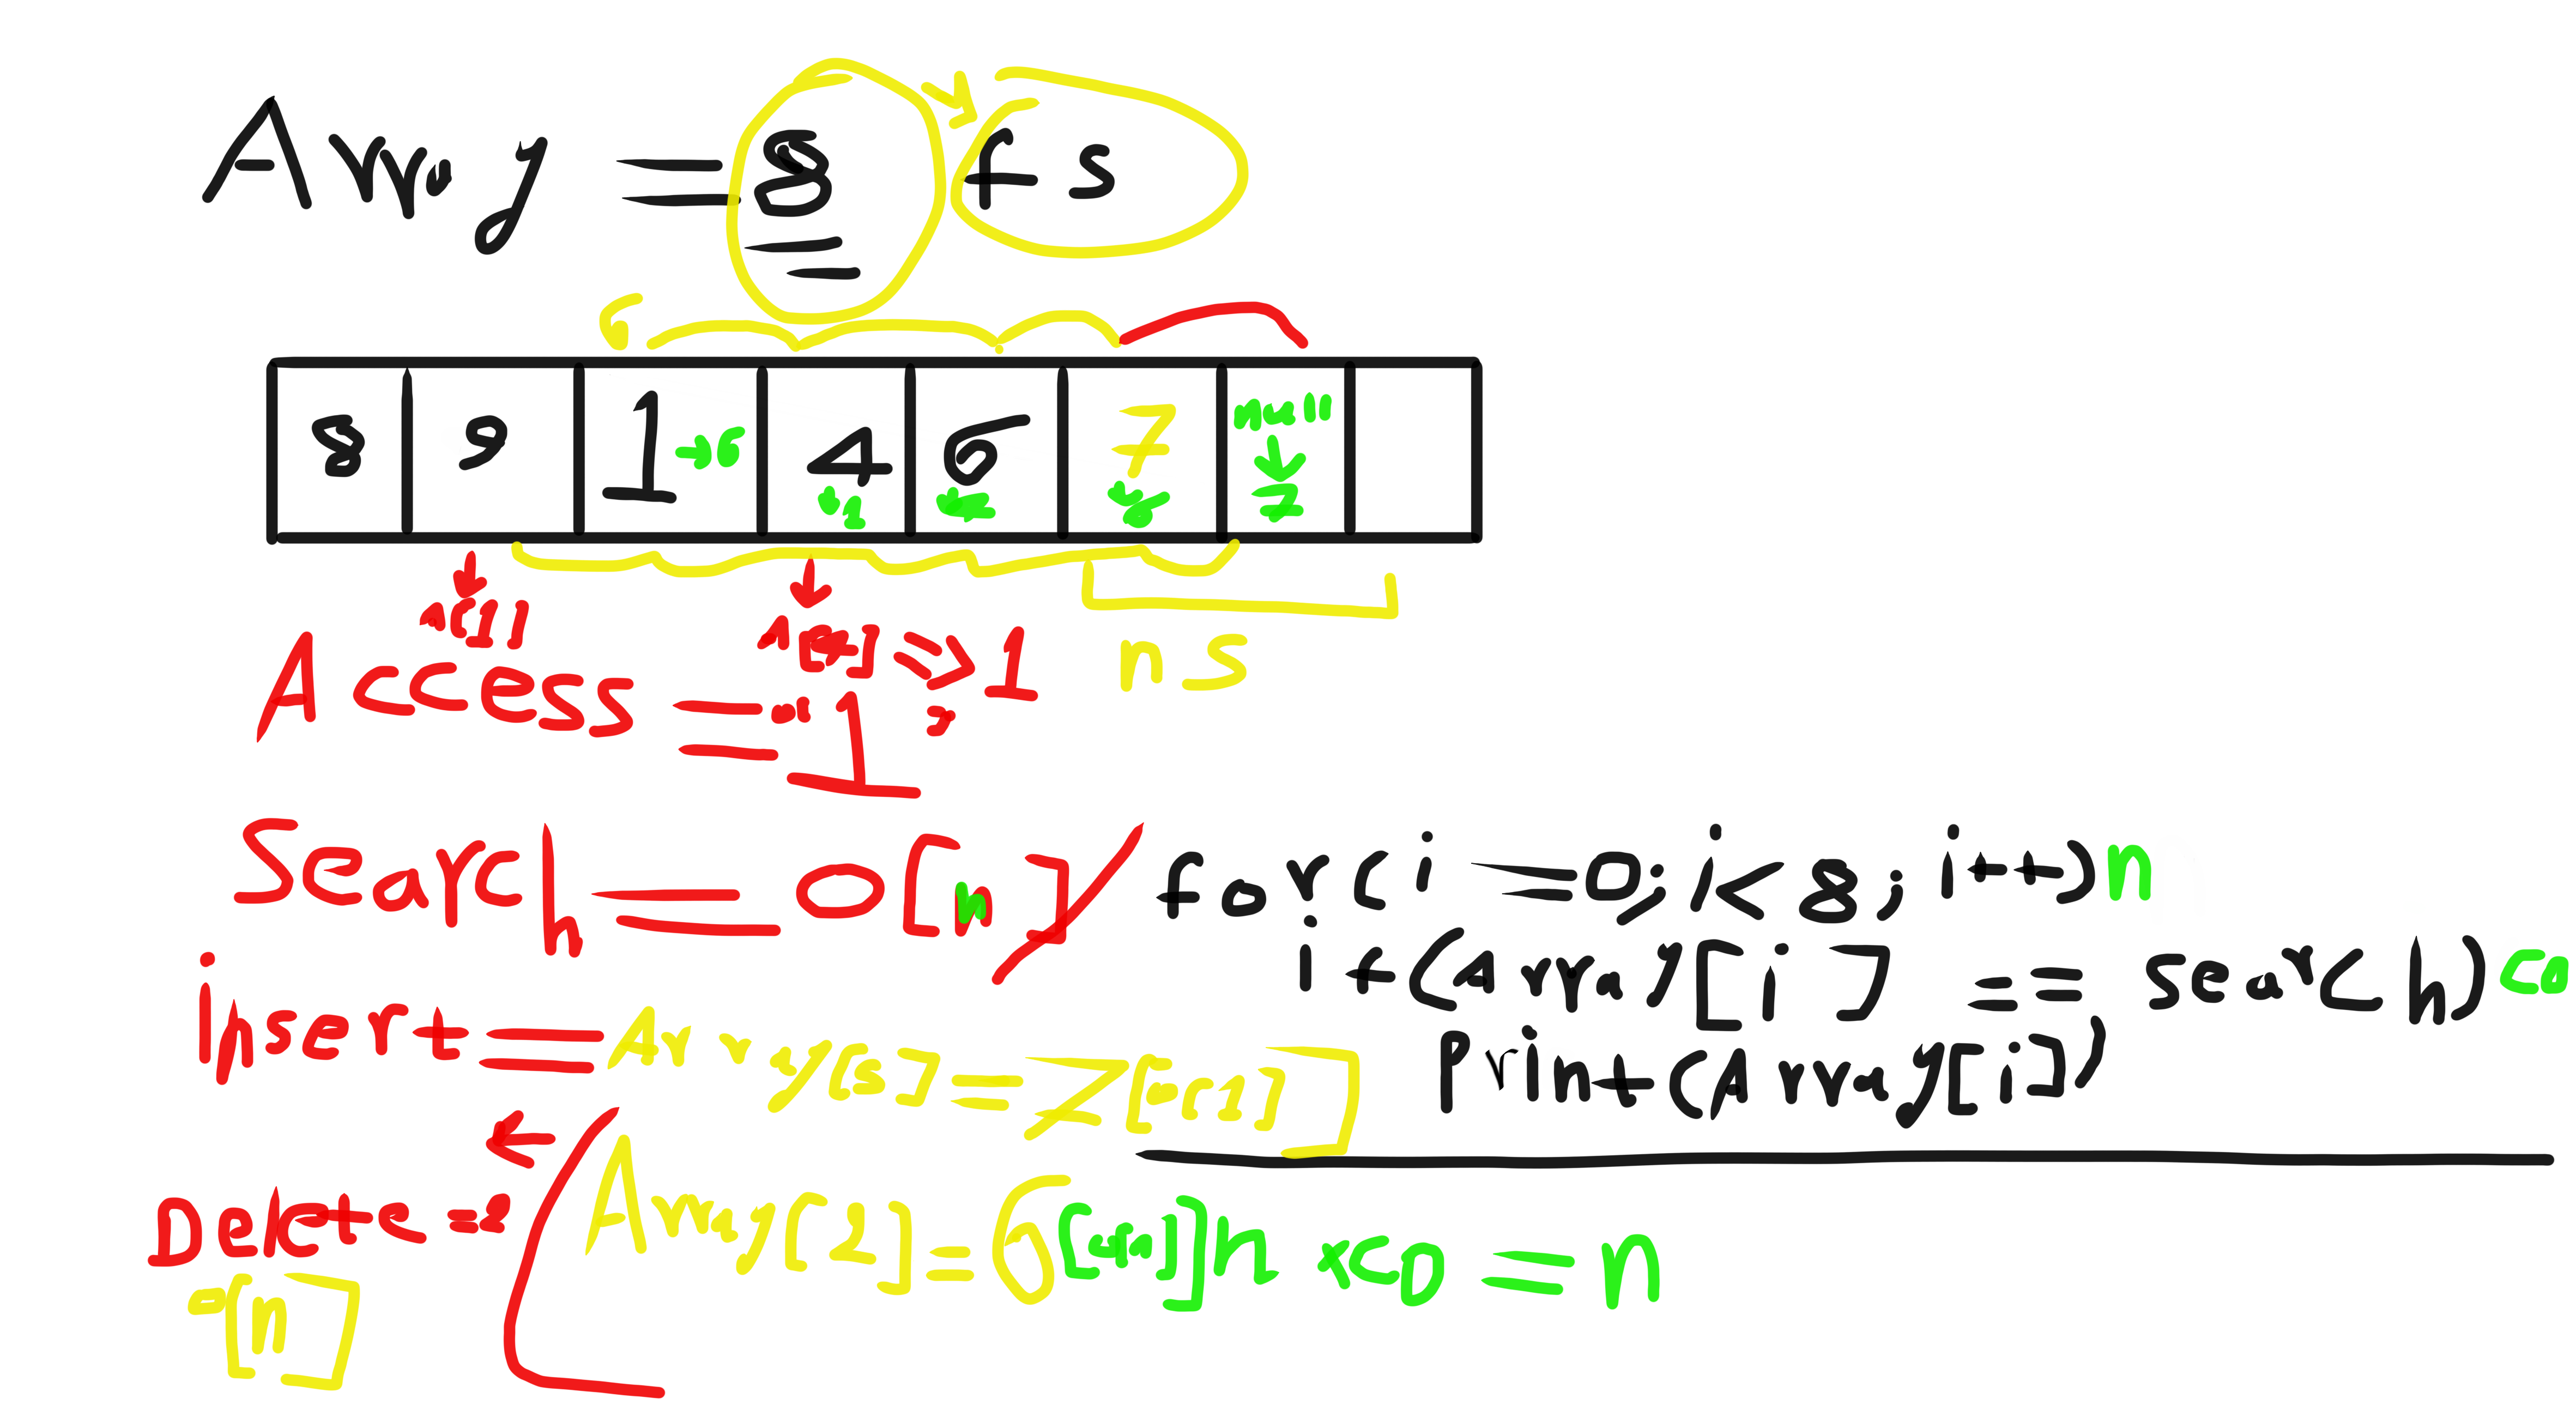 Array = 8 fs
6
8 9 1 →6 4 6 7 null
↓1 ↓6 ↓ 7
A[1] A[4] => 1 ns
Access = 1
Search = O[n] for(i=0; i<8; i++) n
if(Array[i] == search) co
insert = Array[5] = 7 [O[1]] Print(Array[i])
Delete = Array[2] = 6 [O[n]] n × co = n
O[n]